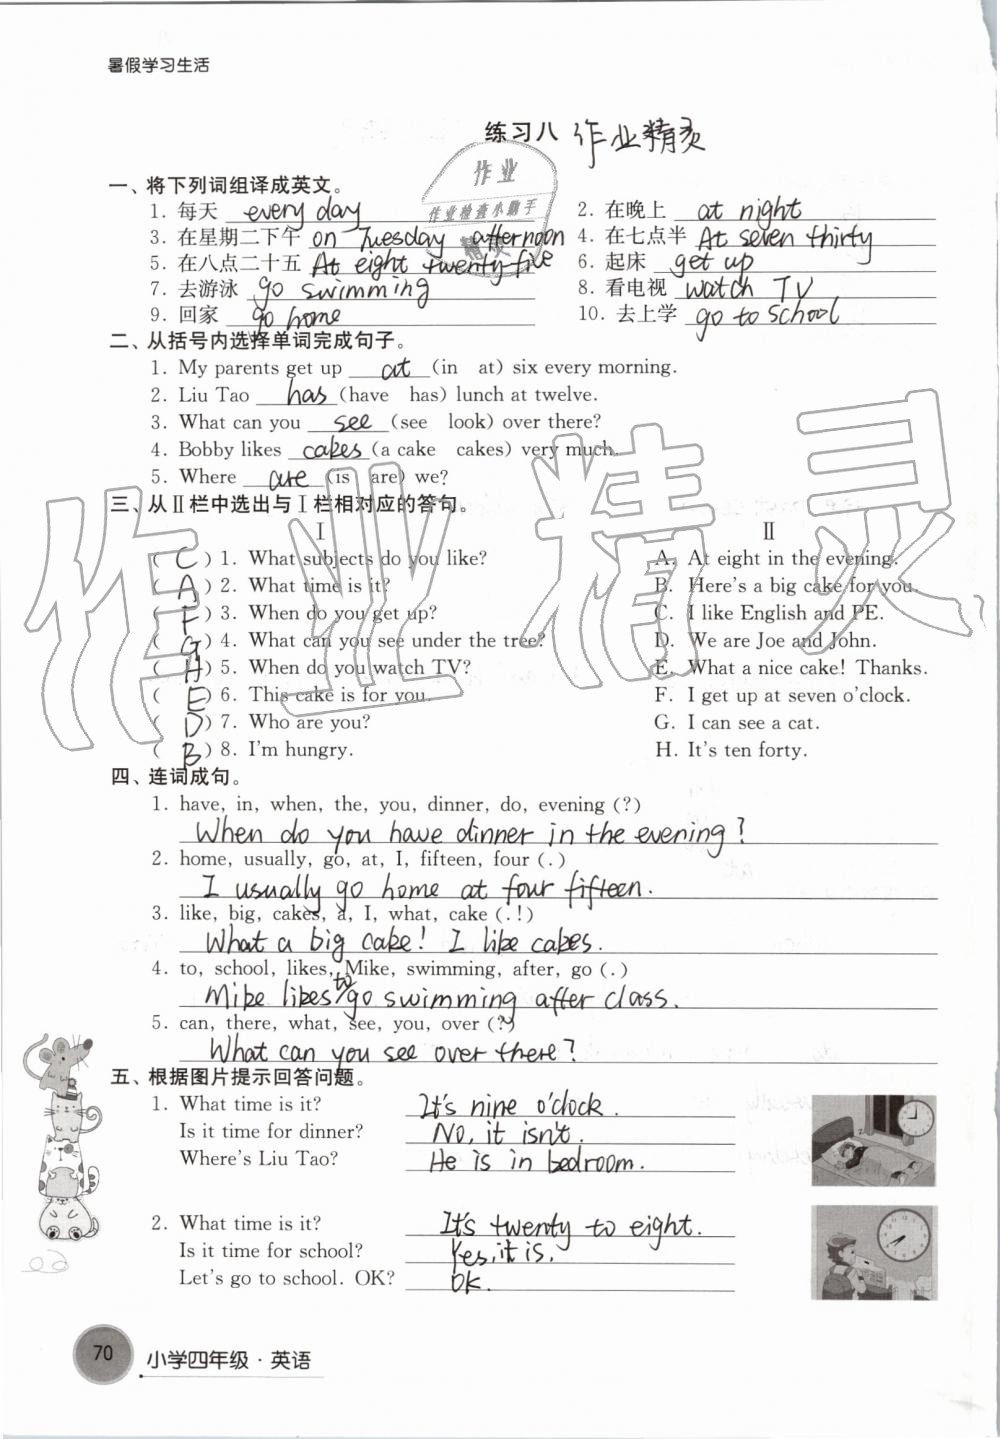 暑假学习生活
练习八 作业精灵
作业
作业检查小助手
精灵
一、将下列词组译成英文。
1. 每天 every day 2. 在晚上 at night
3. 在星期二下午 on Tuesday afternoon 4. 在七点半 At seven thirty
5. 在八点二十五 At eight twenty-five 6. 起床 get up
7. 去游泳 go swimming 8. 看电视 watch TV
9. 回家 go home 10. 去上学 go to school
二、从括号内选择单词完成句子。
1. My parents get up at (in at) six every morning.
2. Liu Tao has (have has) lunch at twelve.
3. What can you see (see look) over there?
4. Bobby likes cakes (a cake cakes) very much.
5. Where are (is are) we?
三、从Ⅱ栏中选出与Ⅰ栏相对应的答句。
Ⅰ Ⅱ
( C ) 1. What subjects do you like? A. At eight in the evening.
( A ) 2. What time is it? B. Here's a big cake for you.
( F ) 3. When do you get up? C. I like English and PE.
( G ) 4. What can you see under the tree? D. We are Joe and John.
( H ) 5. When do you watch TV? E. What a nice cake! Thanks.
( E ) 6. This cake is for you. F. I get up at seven o'clock.
( D ) 7. Who are you? G. I can see a cat.
( B ) 8. I'm hungry. H. It's ten forty.
四、连词成句。
1. have, in, when, the, you, dinner, do, evening (?)
When do you have dinner in the evening?
2. home, usually, go, at, I, fifteen, four (.)
I usually go home at four fifteen.
3. like, big, cakes, a, I, what, cake (.!)
What a big cake! I like cakes.
4. to, school, likes, Mike, swimming, after, go (.)
Mike likes to go swimming after class.
5. can, there, what, see, you, over (?)
What can you see over there?
五、根据图片提示回答问题。
1. What time is it? It's nine o'clock.
Is it time for dinner? No, it isn't.
Where's Liu Tao? He is in bedroom.
2. What time is it? It's twenty to eight.
Is it time for school? Yes, it is.
Let's go to school. OK? OK.
70 小学四年级·英语
作业精灵